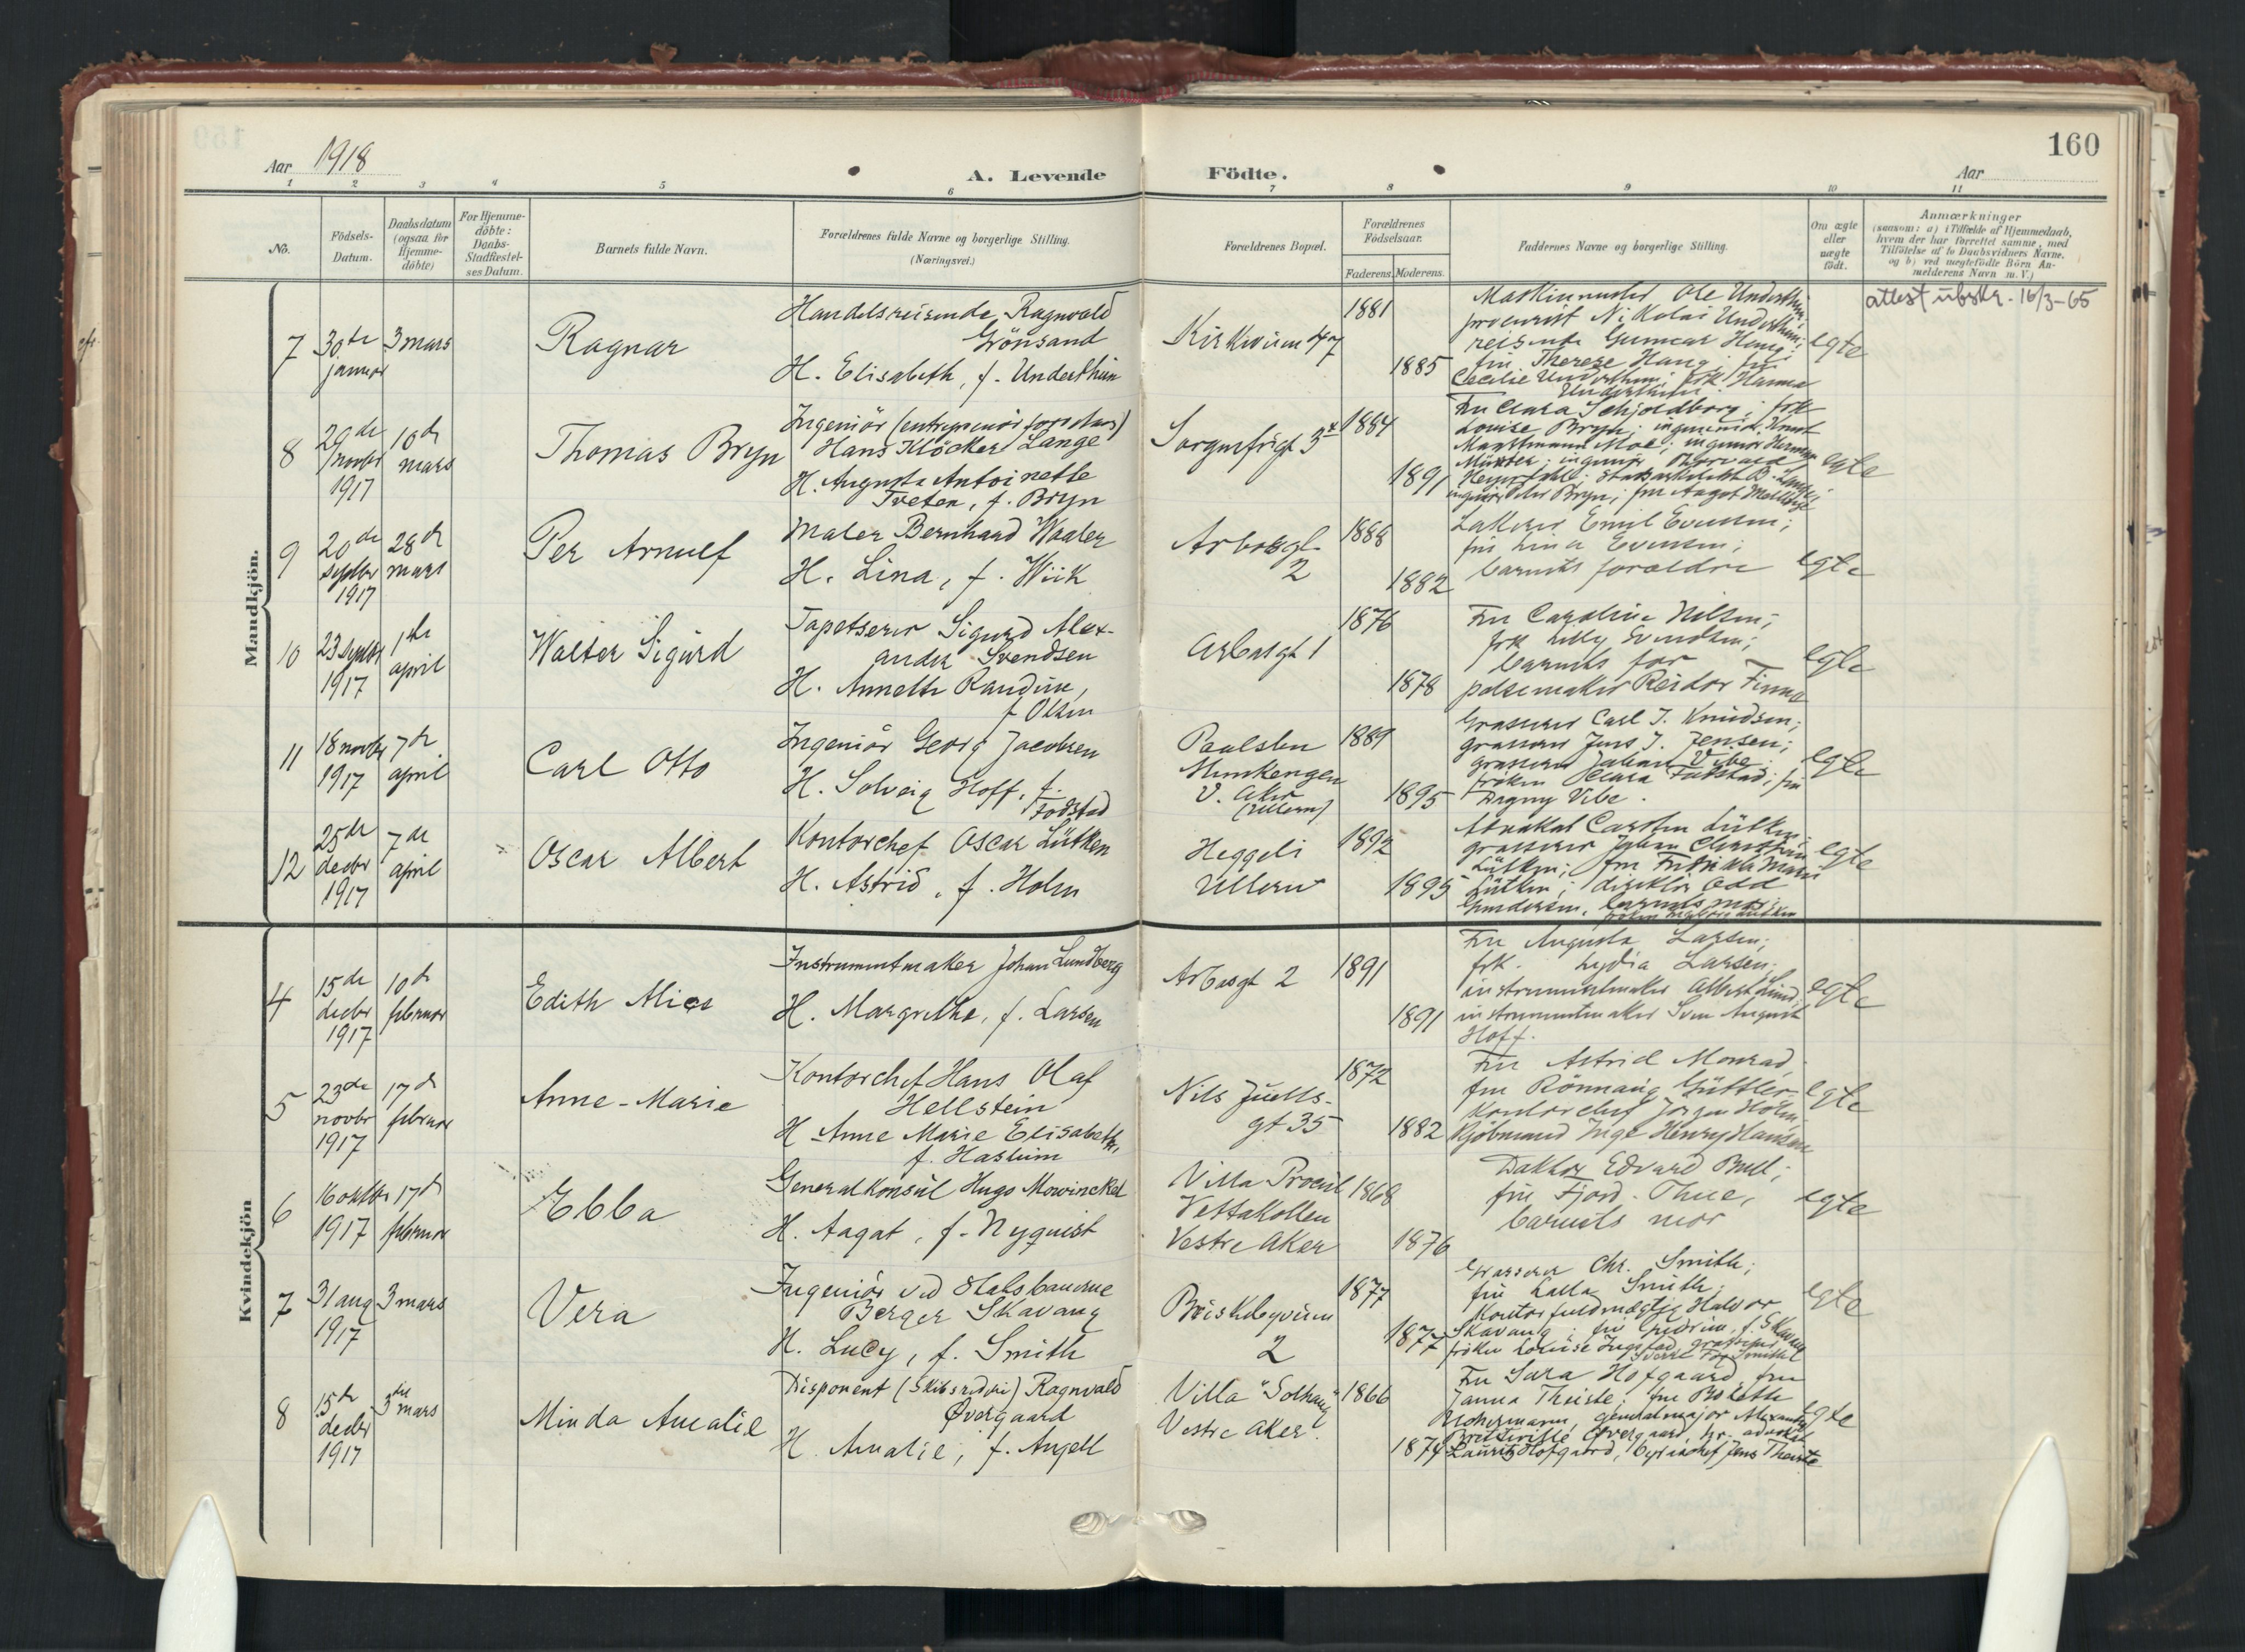 160
Aar 1918
A. Levende Födte.
Aar
1 2 3 4 5 6 7 8 9 10 11
No.
Födsels-
Datum.
Daabsdatum
(ogsaa for
Hjemme-
döbte)
For Hjemme-
döbte:
Daabs-
Stadfæstel-
ses Datum.
Barnets fulde Navn.
Forældrenes fulde Navne og borgerlige Stilling.
(Næringsvei.)
Forældrenes Bopæl.
Forældrenes
Födselsaar.
Faderens. Moderens.
Faddernes Navne og borgerlige Stilling.
Om ægte
eller
uægte
födt.
Anmærkninger
(saasom: a) i Tilfælde af Hjemmedaab,
hvem der har forrettet samme, med
Tilföielse af to Daabsvidners Navne.
og b) ved uægtefödte Börn An-
melderens Navn m. V.)
Mandkjön.
7
30te
januar
3 mars
Ragnar
Handelsreisende Ragnvald
Grönsand
H. Elisabeth, f. Underthun
Kirkeveien 47
1881
1885
procurist Nikolai Underthun;
reisende Gunnar Haug;
fru Therese Haug;
Cecilie Underthun; frk Hanna
Underthun
egte
attest utskr. 16/3-65
8
29de
novbr
1917
10de
mars
Thomas Bryn
Ingeniör
Hans Klöcker Lange
H. Augusta Antoinette
Tveten, f. Bryn
Sorgenfrigt 3
1884
1891
Fru Clara Schjoldborg; frk
Louise Bryn; ingeniör Knut
Moe; ingeniör Herman
Münster; ingeniör Thorvald
Heyerdahl;
ingeniör Peter Bryn; fru Aagot
egte
9
20de
septbr
1917
28de
mars
Per Arnulf
Maler Bernhard Waaler
H. Lina, f. Wiik
Arbosgt.
2
1888
1882
Lakerer Emil Evensen;
fru Lina Evensen;
barnets forældre
egte
10
23 septbr
1917
1ste
april
Walter Sigurd
Tapetserer Sigurd Alex-
ander Svendsen
H. Annette Randine,
f Olsen
Arbosgt 1
1876
1878
Fru Caroline Nilsen;
frk Lilly Svendsen;
barnets far
pølsemaker Reidar Finne
egte
11
18 novbr
1917
7de
april
Carl Otto
Ingeniör Georg Jacobsen
H. Solveig Hoff, f.
Fodstad
Munkengen
V. Aker
(Ullern)
1889
1895
Grosserer Carl J. Knudsen;
grosserer Jens J. Jensen;
grosserer Johan Vibe;
fröken Clara Fodstad; fru
Dagny Vibe.
egte
12
25de
decbr
1917
7de
april
Oscar Albert
Kontorchef Oscar Lütken
H. Astrid, f. Holm
Heggeli
Ullern
1892
1895
Advokat Carsten Lütken;
grosserer Johan Christian
Lütken; fru Fredrikke Marie
Lütken; direktör Odd
Gundersen, barnets mor;
egte
Kvindekjön
4
15de
decbr
1917
10de
februar
Edith Alice
Instrumentmaker Johan Lundberg
H. Margrethe, f. Larsen
Arbosgt 2
1891
1891
Fru Augusta Larsen;
frk. Lydia Larsen;
instrumentmaker Albert Lund;
instrumentmaker Sven August
Hoff.
egte
5
23de
novbr
1917
17de
februar
Anne-Marie
Kontorchef Hans Olaf
Hellstein
H. Anne Marie Elisabeth,
f. Haslum
Nils Juels-
gt 35
1872
1882
Fru Astrid Monrad,
fru Rönnaug Güttler
Kontorchef Jørgen Holm,
Kjöbmand Inge Henry Hansen
egte
6
16 oktbr
1917
17de
februar
Ebba
Generalkonsul Hugo Mowinckel
H. Aagot, f. Nyquist
Villa Procul
Vettakollen
Vestre Aker
1868
1876
Doktor Edvard Bull;
fru Fjord-Thue,
barnets mor
egte
7
31 aug
1917
3 mars
Vera
Ingeniör ved Statsbanerne
Berger Skavang
H. Lucy, f. Smith
Briskebyveien
2
1877
1877
Grosserer Chr. Smith;
fru Lalla Smith;
Kontorfuldmægtig Halvor
Skavang; fru Gudrun f. Skavang
fröken Louise Ingstad; grosserer
egte
8
15de
decbr
1917
3die
mars
Minda Amalie
Disponent (Skibsrederi) Ragnvald
Övergaard
H. Amalie, f. Angell
Villa "Solhaug"
Vestre Aker.
1866
1874
Fru Sara Hofgaard, fru
Janna Theiste; fru Bolette
Uchermann, generalmajor Alexander
Bretteville Övergaard, hr. advokat
Lauritz Hofgaard, byraachef Jens Theiste
egte